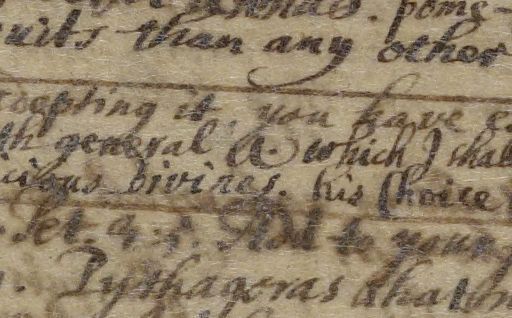 pome-
uits than any other
cepting it, you have e
th general A. which J shal
icious divines. his Choice
. Pet. 4. Add to your
. Pythagoras